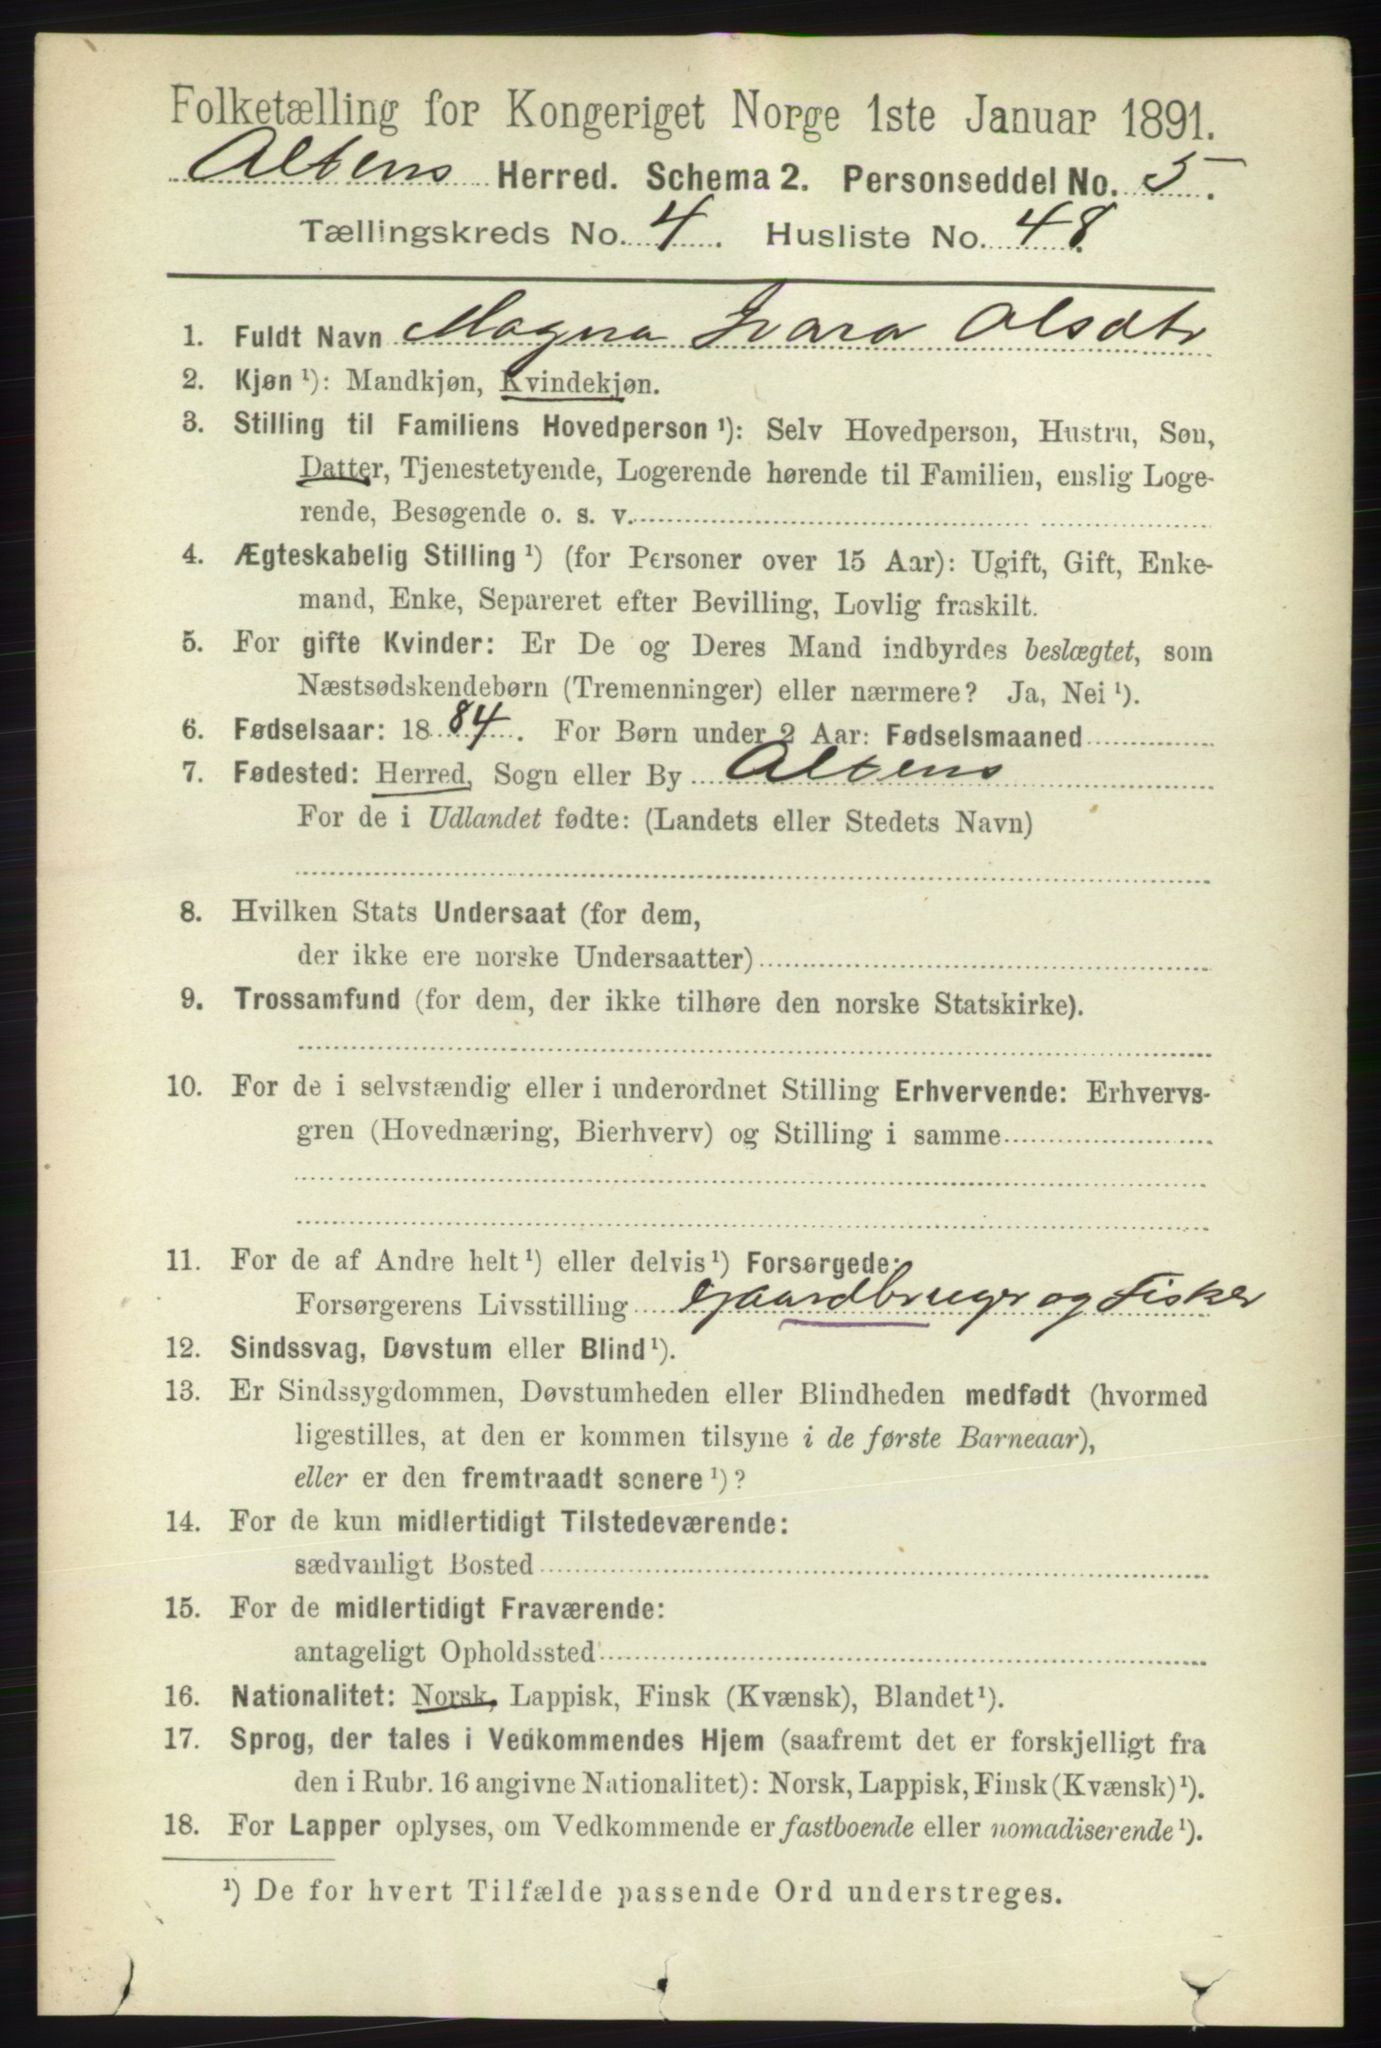 Folketælling for Kongeriget Norge 1ste Januar 1891.
Altens Herred. Schema 2. Personseddel No. 5.
Tællingskreds No. 4. Husliste No. 48.
1. Fuldt Navn Magna Ivara Olsdtr
2. Kjøn ¹): Mandkjøn, Kvindekjøn.
3. Stilling til Familiens Hovedperson ¹): Selv Hovedperson, Hustru, Søn,
Datter, Tjenestetyende, Logerende hørende til Familien, enslig Loge-
rende, Besøgende o. s. v.
4. Ægteskabelig Stilling ¹) (for Personer over 15 Aar): Ugift, Gift, Enke-
mand, Enke, Separeret efter Bevilling, Lovlig fraskilt.
5. For gifte Kvinder: Er De og Deres Mand indbyrdes beslægtet, som
Næstsødskendebørn (Tremenninger) eller nærmere? Ja, Nei ¹).
6. Fødselsaar: 1884. For Børn under 2 Aar: Fødselsmaaned
7. Fødested: Herred, Sogn eller By Altens
For de i Udlandet fødte: (Landets eller Stedets Navn)
8. Hvilken Stats Undersaat (for dem,
der ikke ere norske Undersaatter)
9. Trossamfund (for dem, der ikke tilhøre den norske Statskirke).
10. For de i selvstændig eller i underordnet Stilling Erhvervende: Erhvervs-
gren (Hovednæring, Bierhverv) og Stilling i samme
11. For de af Andre helt ¹) eller delvis ¹) Forsørgede:
Forsørgerens Livsstilling Gaardbruger og Fisker
12. Sindssvag, Døvstum eller Blind ¹).
13. Er Sindssygdommen, Døvstumheden eller Blindheden medfødt (hvormed
ligestilles, at den er kommen tilsyne i de første Barneaar),
eller er den fremtraadt senere ¹)?
14. For de kun midlertidigt Tilstedeværende:
sædvanligt Bosted
15. For de midlertidigt Fraværende:
antageligt Opholdssted
16. Nationalitet: Norsk, Lappisk, Finsk (Kvænsk), Blandet ¹).
17. Sprog, der tales i Vedkommendes Hjem (saafremt det er forskjelligt fra
den i Rubr. 16 angivne Nationalitet): Norsk, Lappisk, Finsk (Kvænsk) ¹).
18. For Lapper oplyses, om Vedkommende er fastboende eller nomadiserende ¹).
¹) De for hvert Tilfælde passende Ord understreges.